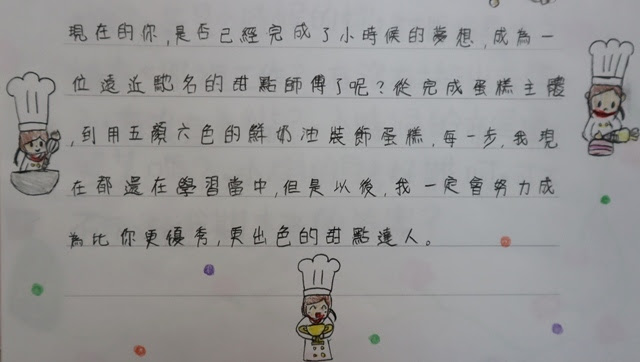 現在的你,是否已經完成了小時候的夢想,成為一
位遠近馳名的甜點師傅了呢?從完成蛋糕主體
,到用五顏六色的鮮奶油裝飾蛋糕,每一步,我現
在都還在學習當中,但是以後,我一定會努力成
為比你更優秀,更出色的甜點達人。